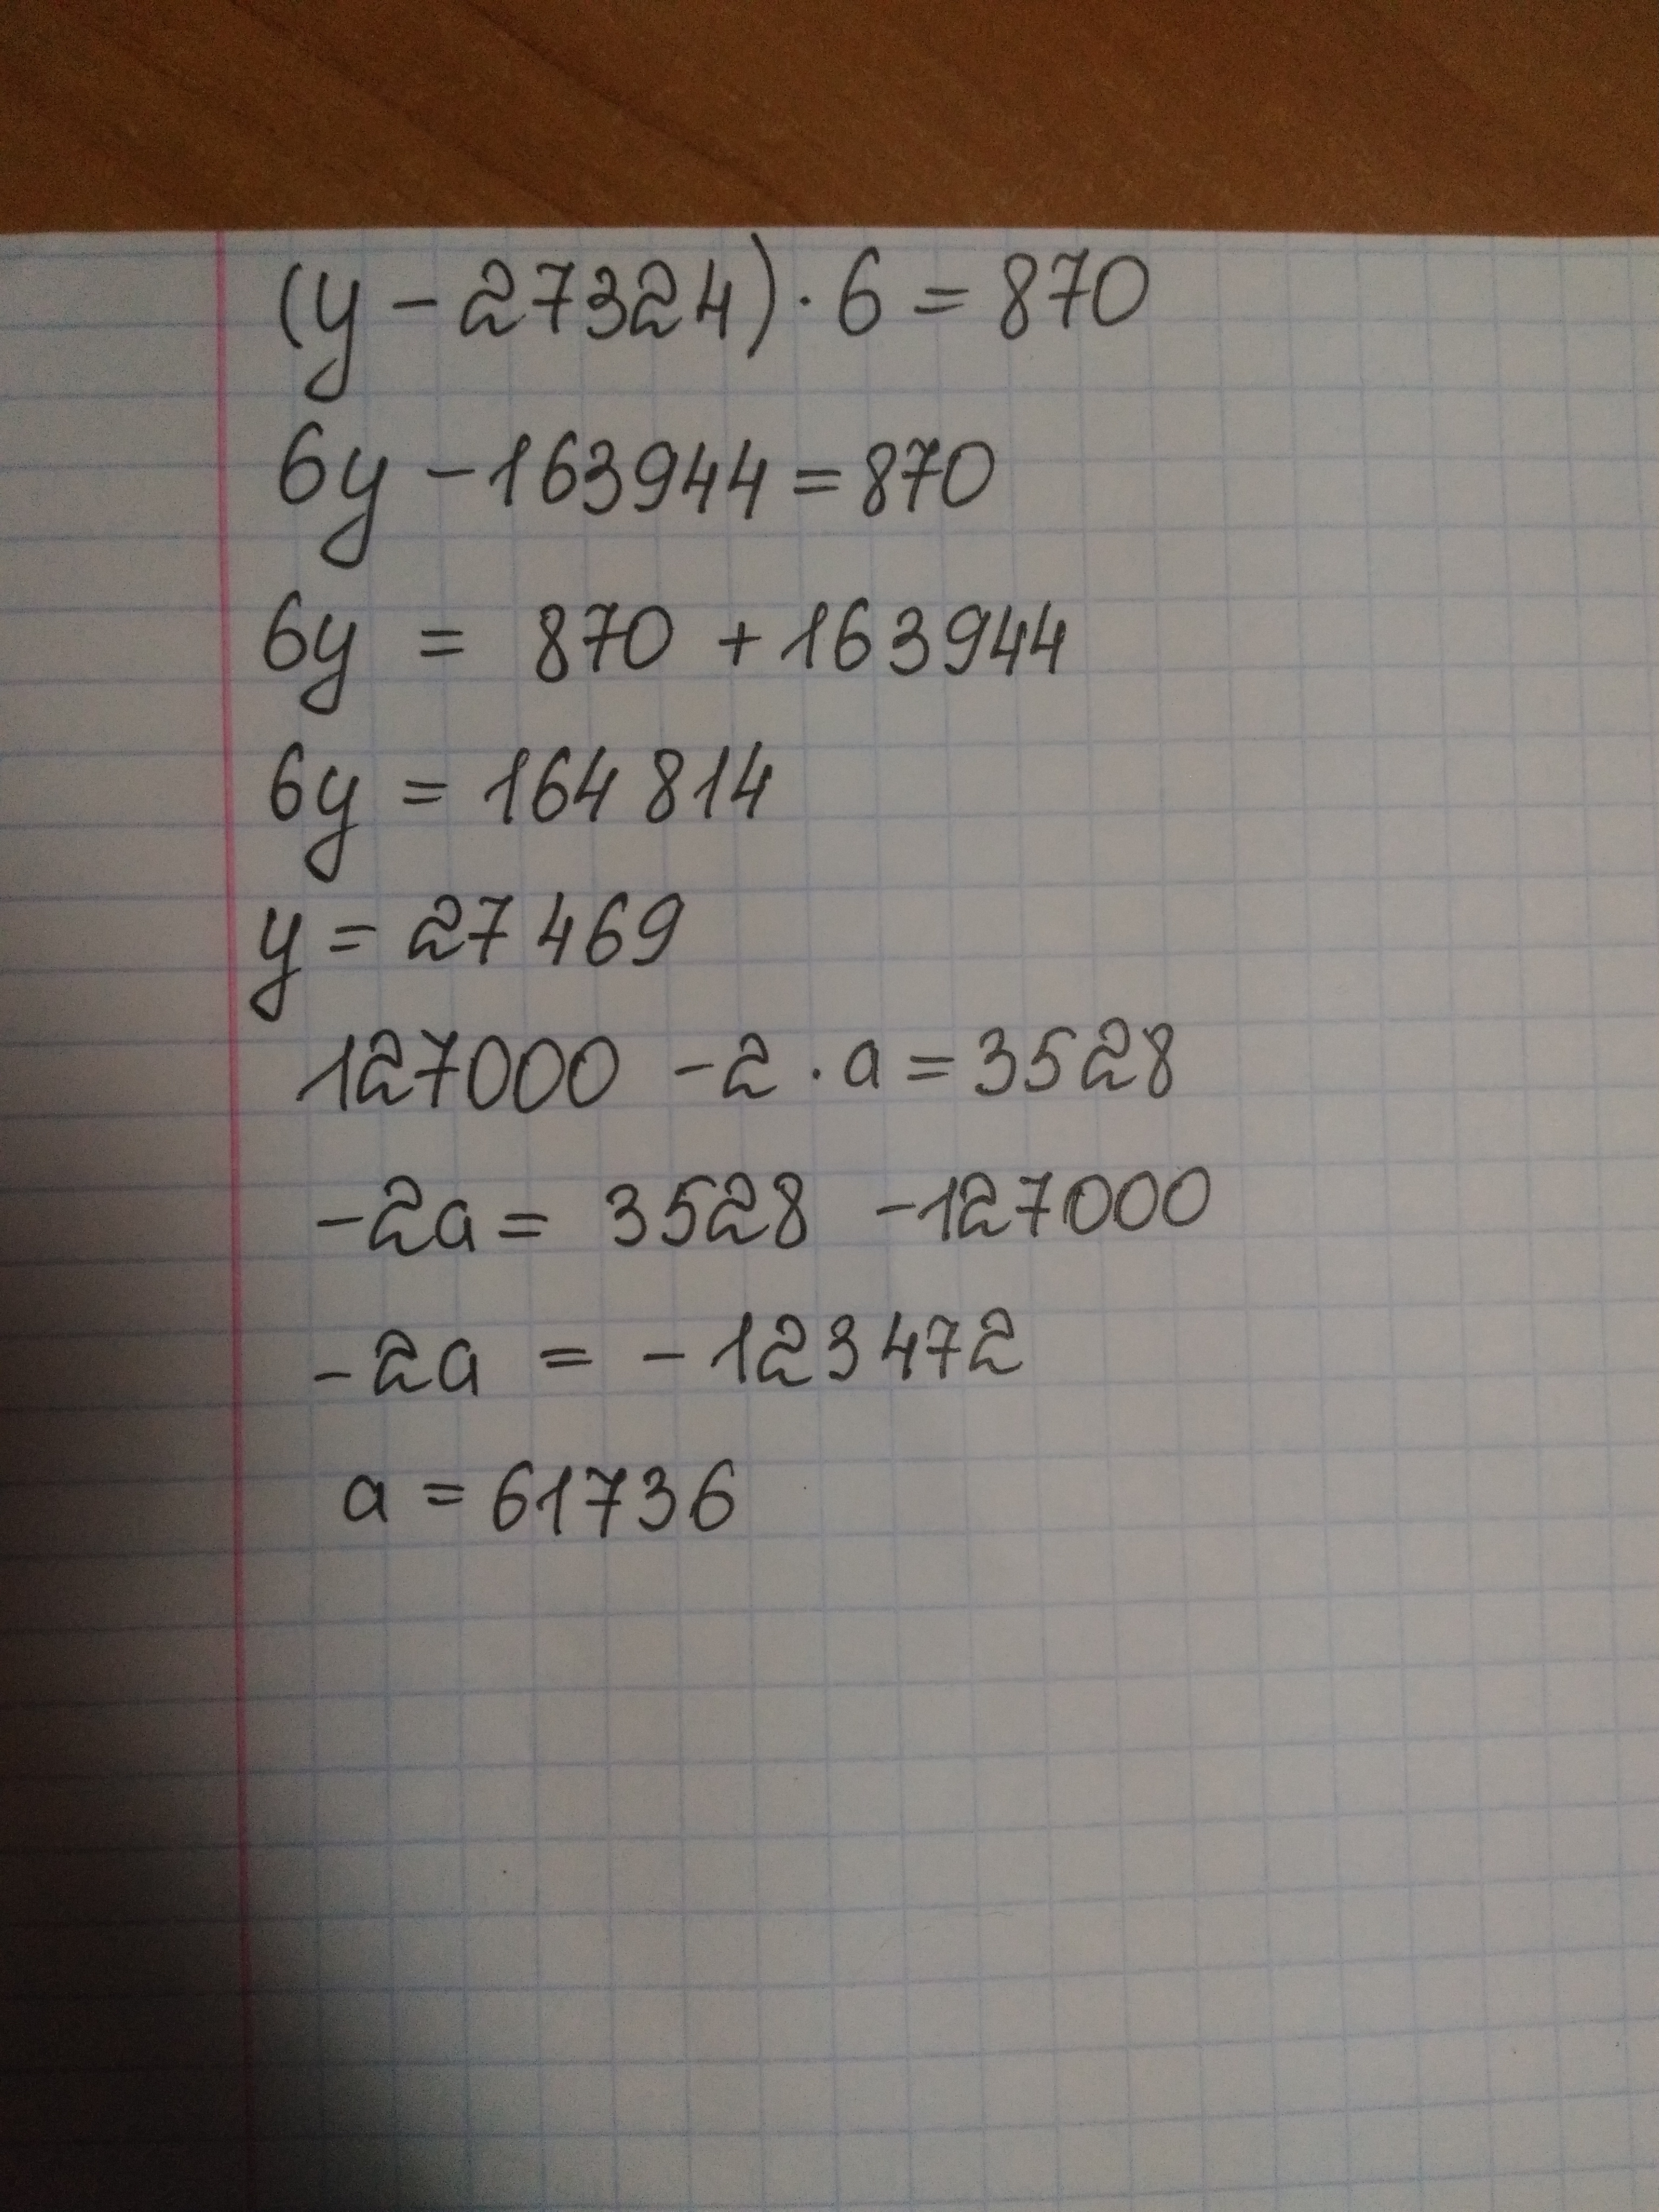 (y - 27324) · 6 = 870
6y - 163944 = 870
6y = 870 + 163944
6y = 164 814
y = 27 469
127000 - 2 · a = 3528
-2a = 3528 - 127000
-2a = - 123 472
a = 61736